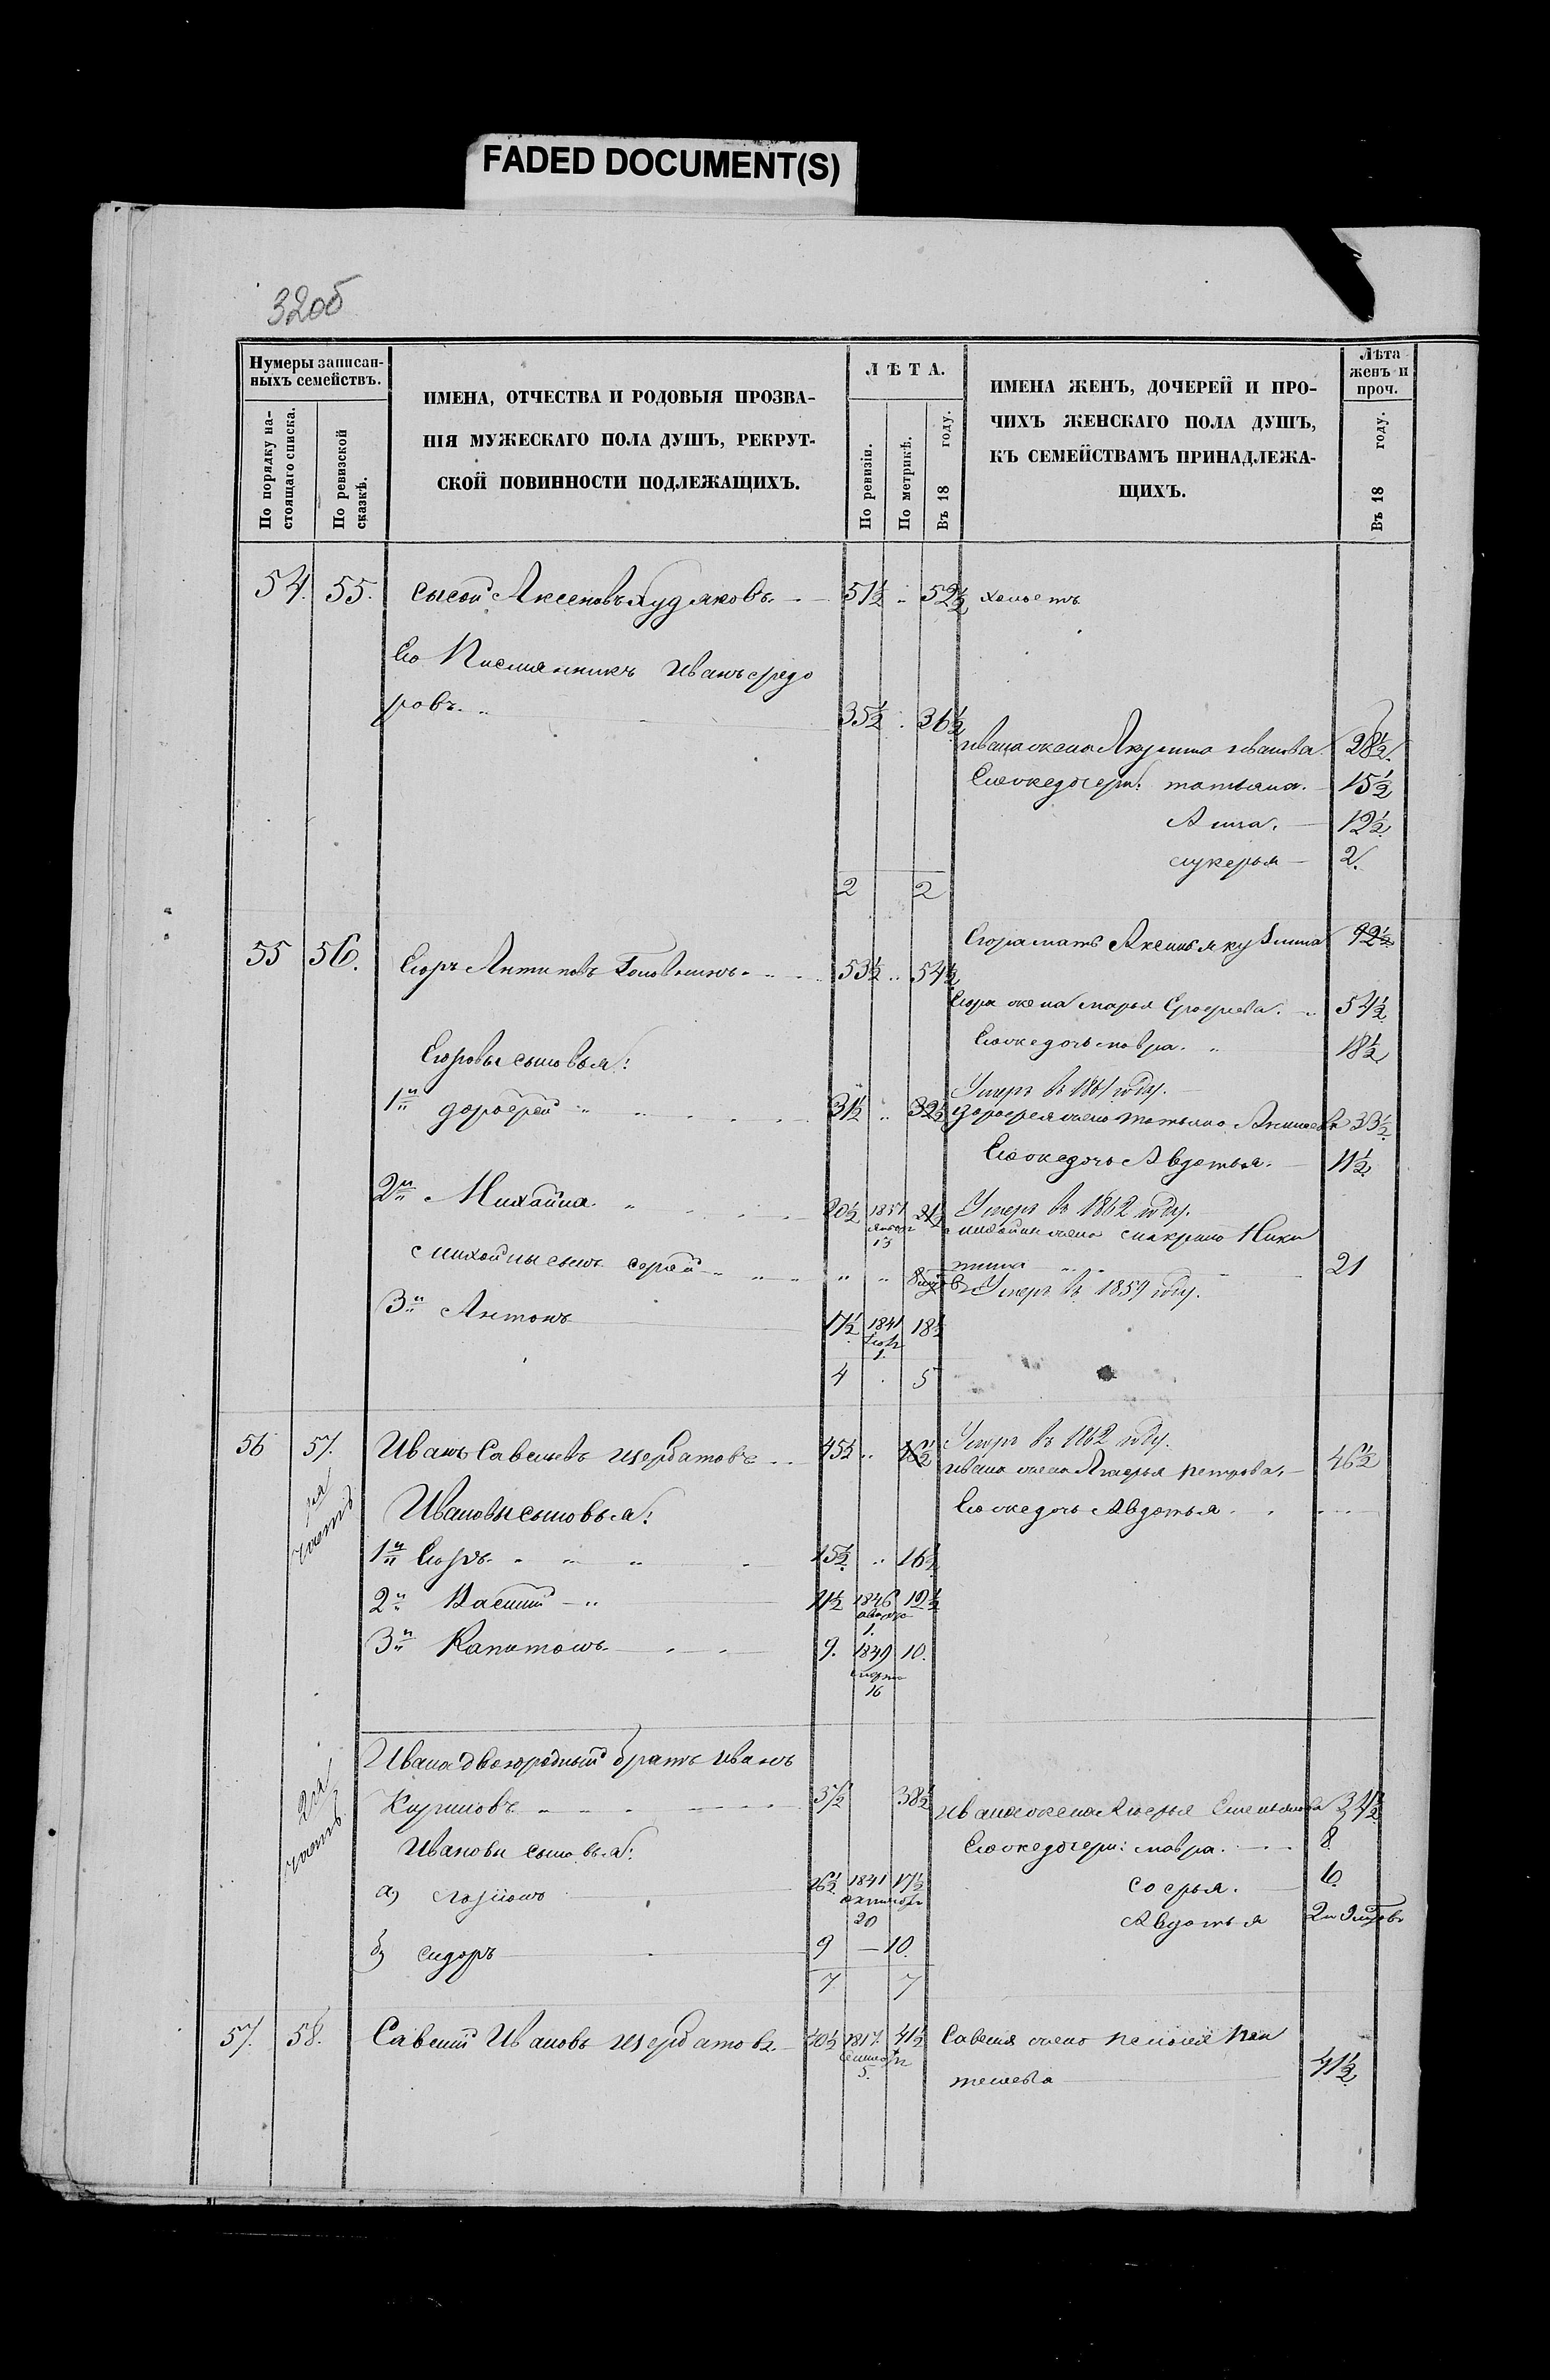 FADED DOCUMENT(S)
32об
Нумеры записан-
ныхъ семействъ.
По порядку на-
стоящаго списка.
По ревизской
сказкѣ.
ИМЕНА, ОТЧЕСТВА И РОДОВЫЯ ПРОЗВА-
НІЯ МУЖЕСКАГО ПОЛА ДУШЪ, РЕКРУТ-
СКОЙ ПОВИННОСТИ ПОДЛЕЖАЩИХЪ.
ЛѢТА.
По ревизіи.
По метрикѣ.
Въ 18 году.
ИМЕНА ЖЕНЪ, ДОЧЕРЕЙ И ПРО-
ЧИХЪ ЖЕНСКАГО ПОЛА ДУШЪ,
КЪ СЕМЕЙСТВАМЪ ПРИНАДЛЕЖА-
ЩИХЪ.
Лѣта
женъ и
проч.
Въ 18 году.
54. 55. Сысой Аксеновъ Худяковъ 51½ 52½ холостъ
Его Племянникъ Иванъ Федо
ровъ 35½ 36½
Ивана жена Акулина Иванова 28½
Его же дочери: Татьяна. 15½
Анна. 12½
Лукерья 2.
2 2
Егора мать Аксинья 92½
55 56. Егоръ Антиповъ 53½ 54½
Егора жена Марья 54½
Его же дочь Мавра. 18½
Егоровы сыновья:
Умеръ въ 1861 году.
1й Дорофей 31½ 32½ Дорофея жена Татьяна 33½
Его же дочь Авдотья. 11½
2й Михайла 20½ 13 21½ Умеръ въ 1862 году.
Михайлы жена Макрина Ники
тина 21
Михайлы сынъ Сергей
Умеръ въ 1859 году.
3й Антонъ 17½ 1841 1. 18½
4 5
56 57. Иванъ Савельевъ Щербатовъ 45½ 46½ Умеръ въ 1862 году.
Ивана жена Петрова. 46½
Его же дочь Авдотья
1я часть
Ивановы сыновья:
1й Егоръ 15½ 16½
2й Василій 11½ 1846 1. 12½
3й Капитонъ 9. 1849 марта 16 10.
2я часть
Ивана двоюродный братъ Иванъ
Кириловъ 37½ 38½ Ивана жена 34½
Ивановы сыновья: Его же дочери: Мавра. 8
а) Ларіонъ 16½ 1841 октября 20 17½ Софья. 6
Авдотья
б) Сидоръ 9 10.
7 7
57. 58. Савелій Ивановъ Щербатовъ 40½ 1817. сентября 5. 41½ Савелія жена Пелагея Пан
телева 41½